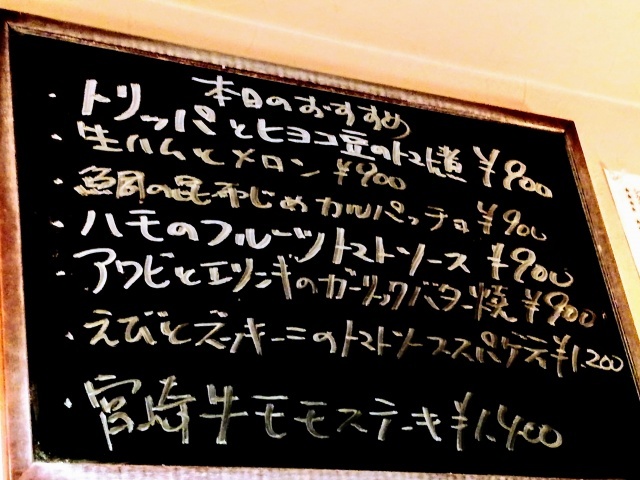 本日のおすすめ
・トリッパとヒヨコ豆のトマト煮 ¥900
・生ハムとメロン ¥900
・鯛の昆布じめカルパッチョ ¥900
・ハモのフルーツトマトソース ¥900
・アワビとエリンギのガーリックバター焼 ¥900
・えびとズッキーニのトマトソーススパゲティ ¥1,200
・宮崎牛モモステーキ ¥1,400